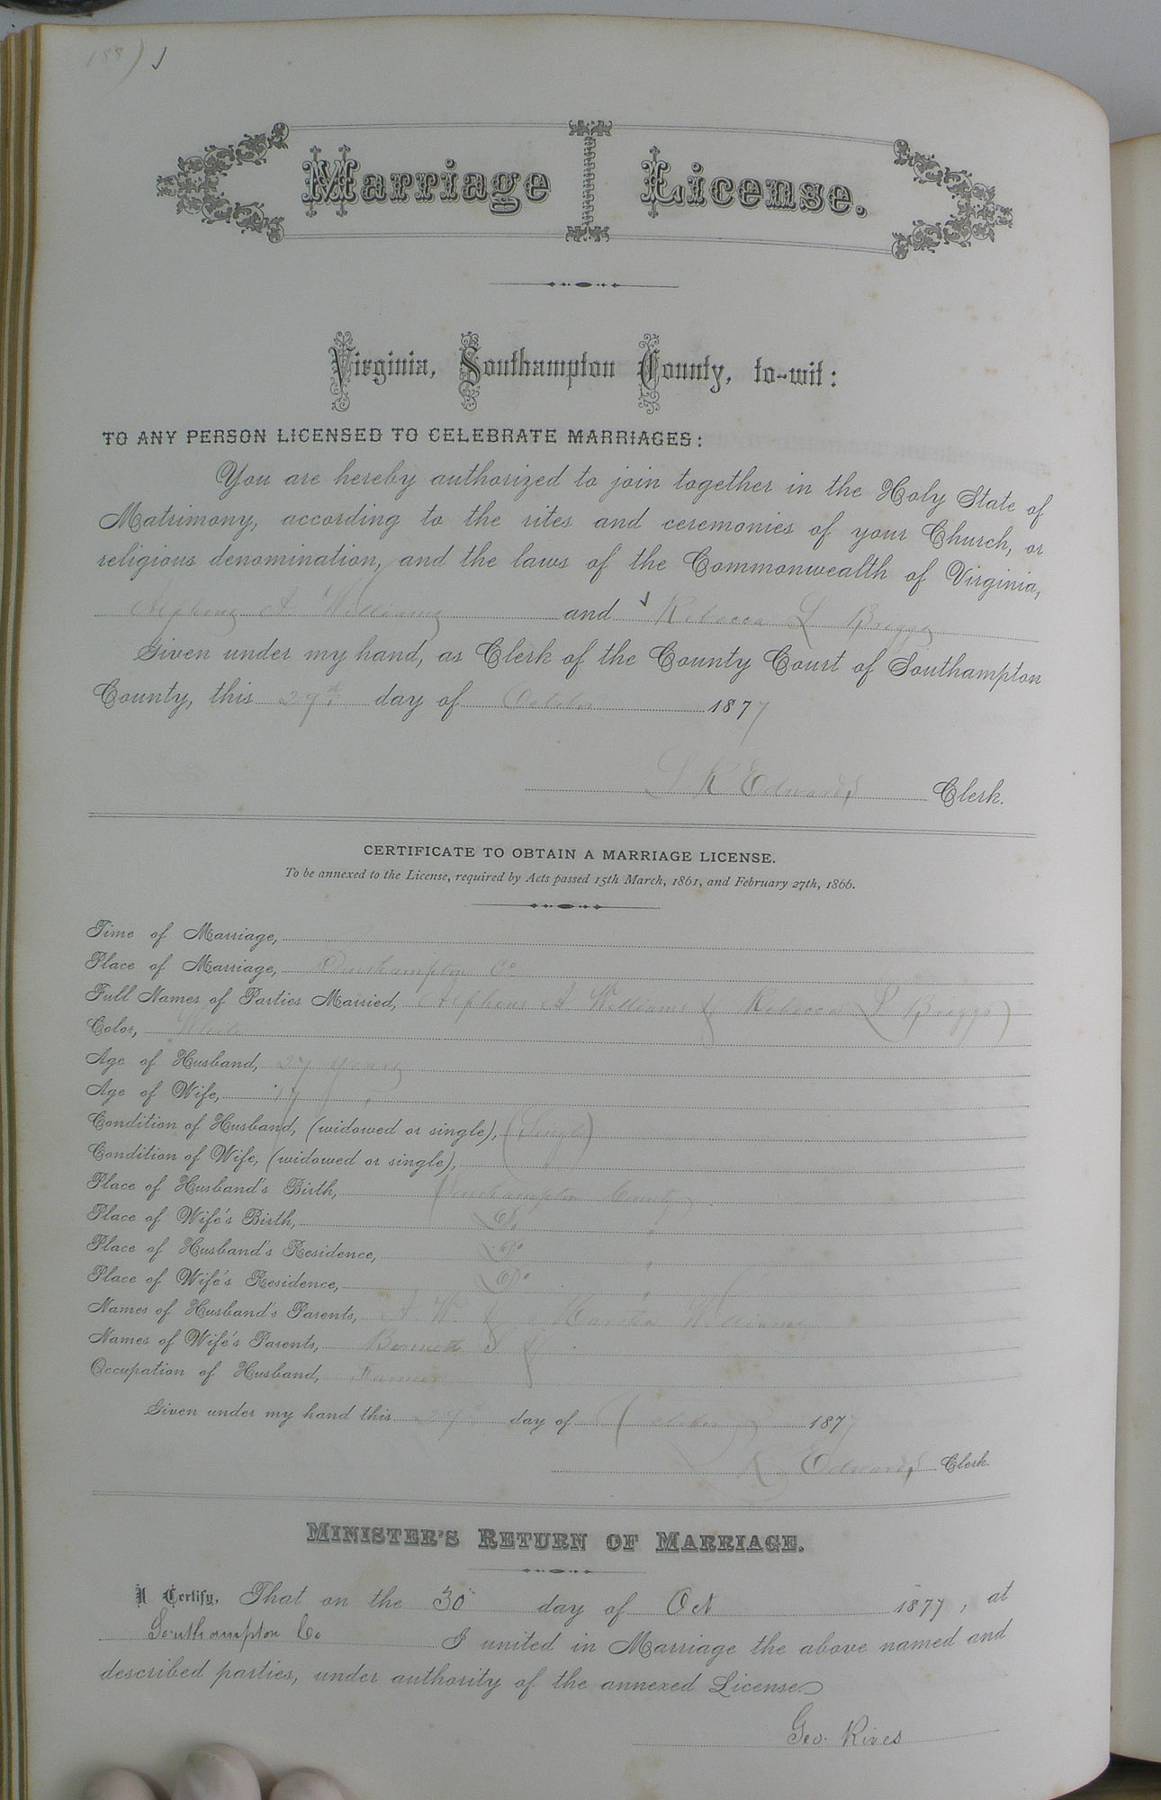 188)
Marriage License.
Virginia, Southampton County, to-wit:
TO ANY PERSON LICENSED TO CELEBRATE MARRIAGES:
You are hereby authorized to join together in the Holy State of
Matrimony, according to the rites and ceremonies of your Church, or
religious denomination, and the laws of the Commonwealth of Virginia,
A. Williams and Rebecca L Briggs
Given under my hand, as Clerk of the County Court of Southampton
County, this 29th day of October 1877
L R Edwards, Clerk.
CERTIFICATE TO OBTAIN A MARRIAGE LICENSE.
To be annexed to the License, required by Acts passed 15th March, 1861, and February 27th, 1866.
Time of Marriage,
Place of Marriage, Southampton Co
Full Names of Parties Married, A Williams & Rebecca L Briggs
Color, White
Age of Husband, 27 years
Age of Wife, 17 "
Condition of Husband, (widowed or single), (Single)
Condition of Wife, (widowed or single),
Place of Husband's Birth, Southampton County
Place of Wife's Birth, Do "
Place of Husband's Residence, Do "
Place of Wife's Residence, Do "
Names of Husband's Parents, & Williams
Names of Wife's Parents, Bennett &
Occupation of Husband, Farmer
Given under my hand this 29 day of October 1877
L R Edwards, Clerk
MINISTER'S RETURN OF MARRIAGE.
I Certify, That on the 30 day of Oct 1877, at
Southampton Co I united in Marriage the above named and
described parties, under authority of the annexed License.
Geo. Rives